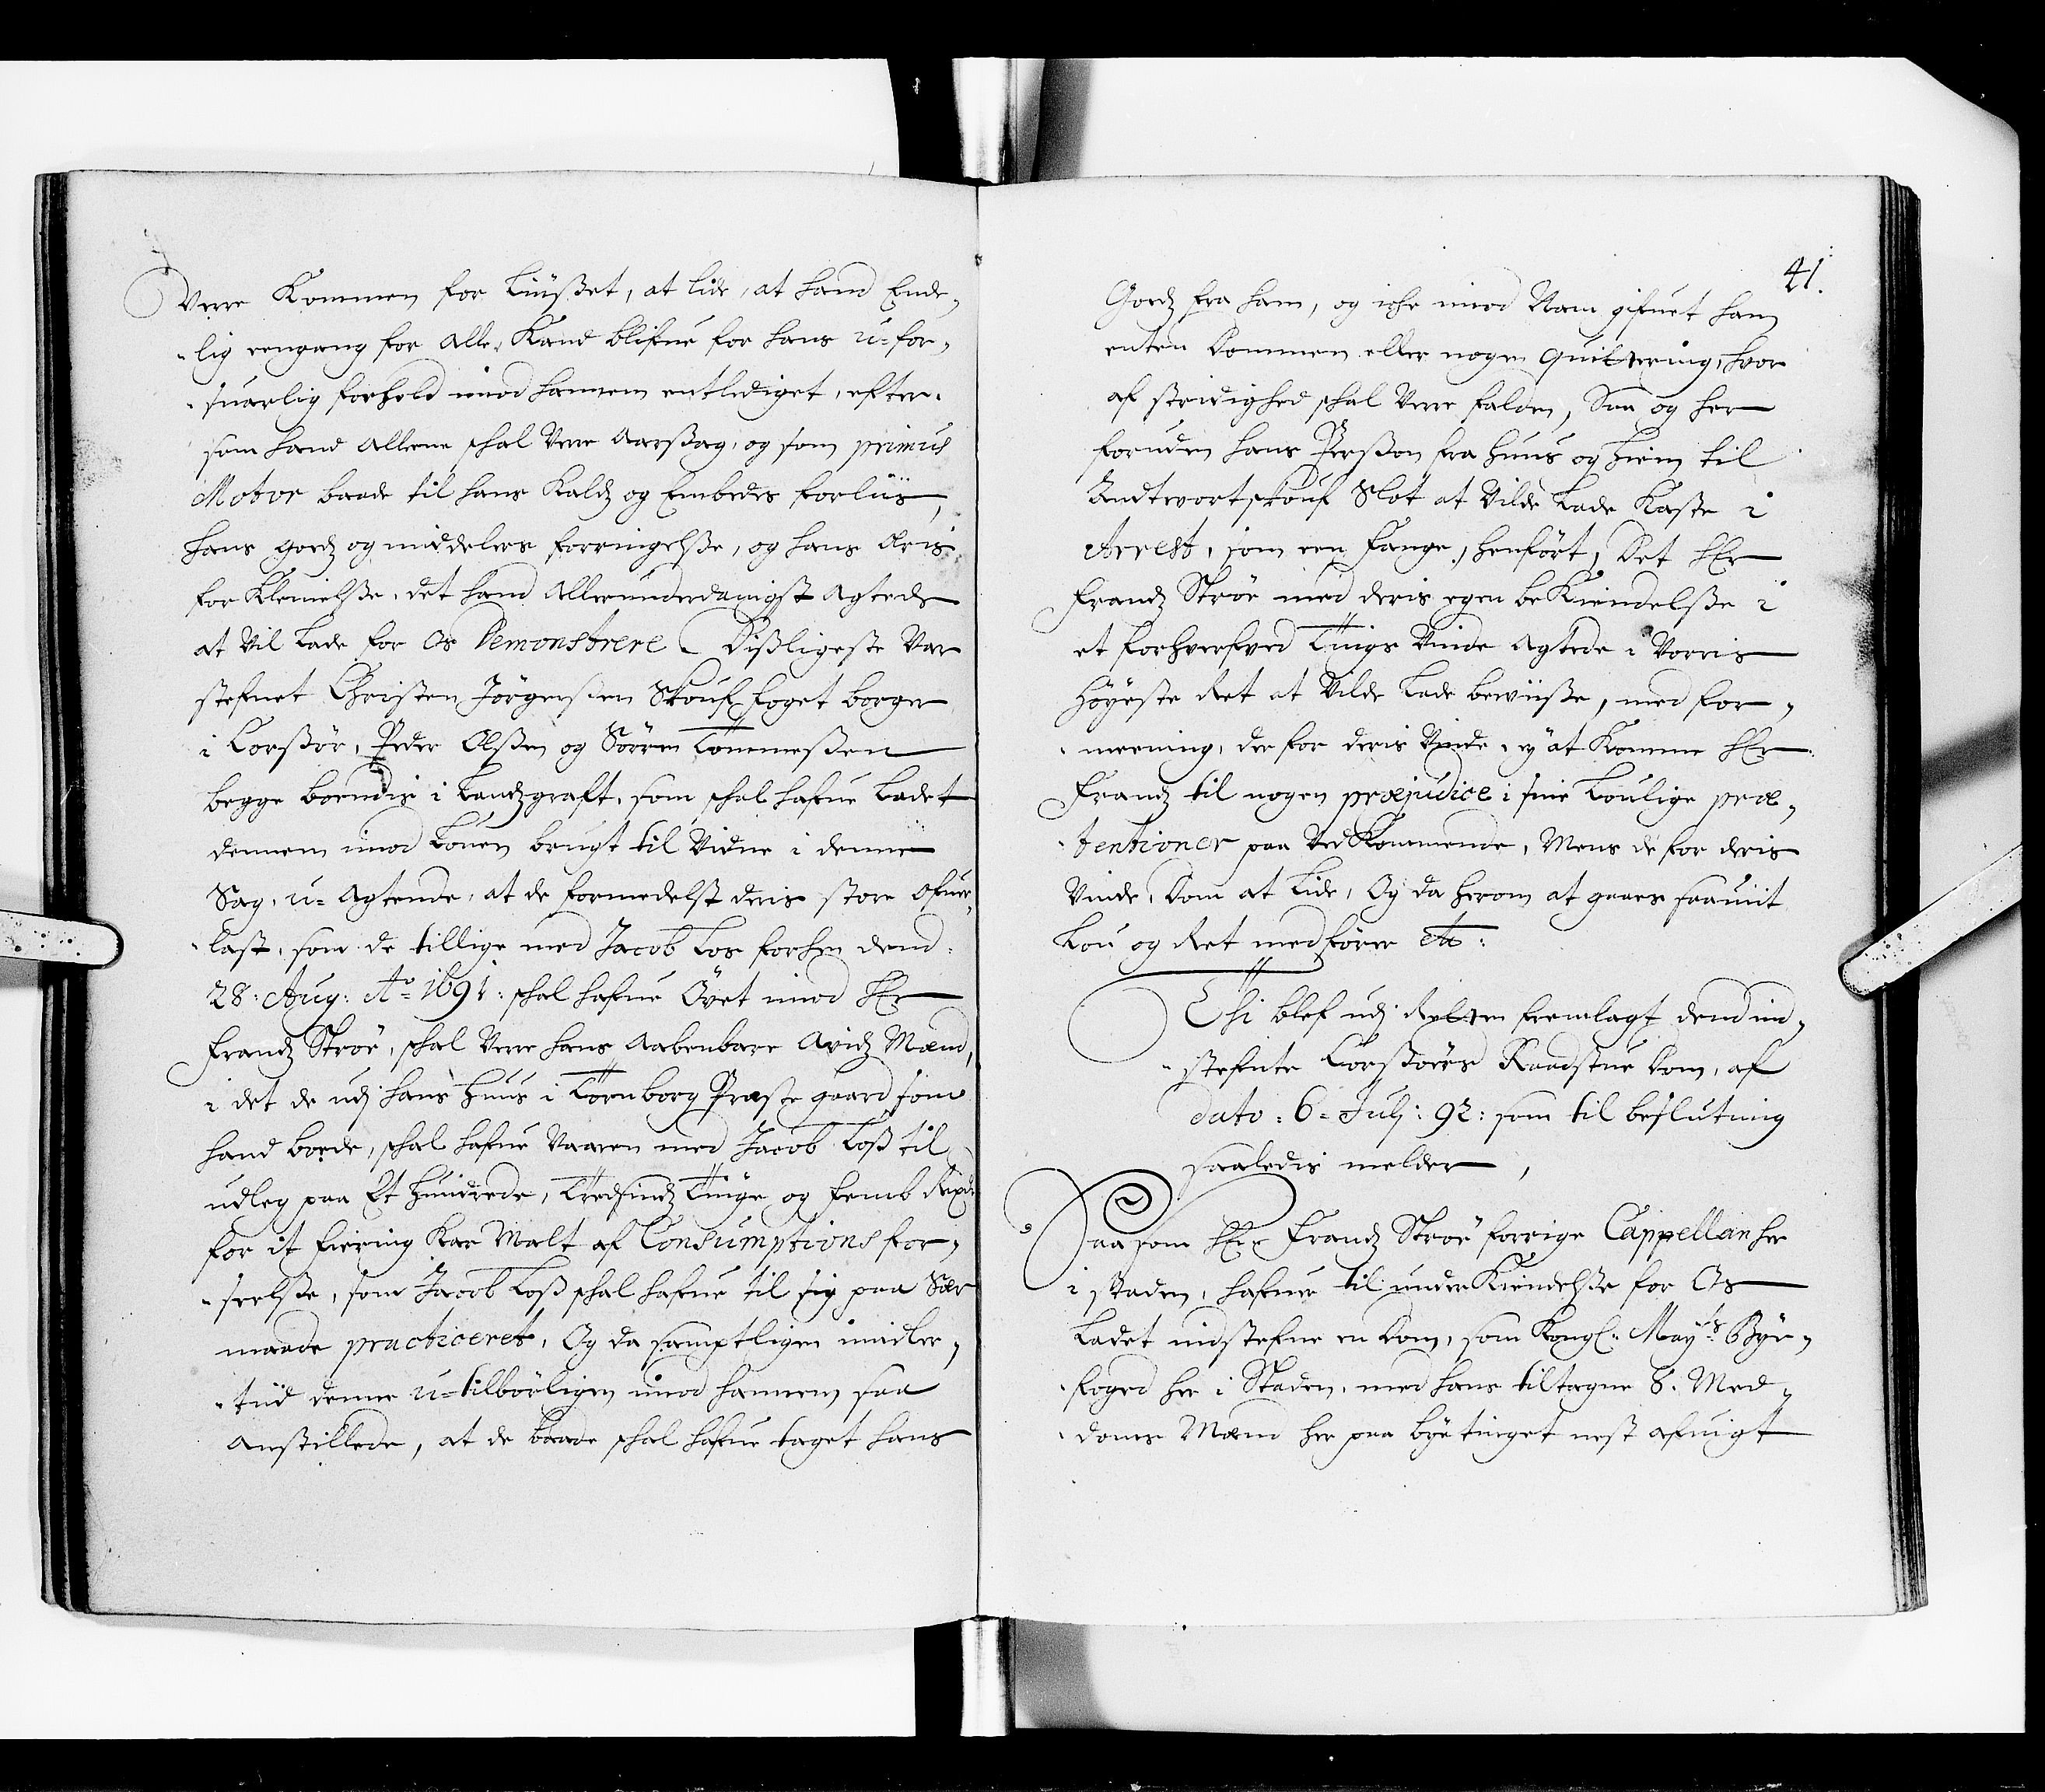 Verre Kommen for Liusset, at lide, at hand Ende-
lig engang for alle, Kand blifue for hans u-for-
suarlig forhold imod hannem entlediget, efter-
som hand allene schal Verre Aarssag, og som primus
Motor baade til hans Kaldz og Embedes forliis,
hans godz og middelers forringelsse, og hans Æris
for Klenelsse, det hand Allerunderdanigst Agtede
at Vil Lade for Os Demonstrere Dissligeste Var
stefnet Christen Jørgensen Skouf foget borger
i Corssør, Peder Olssen og Søfren Tommessen
begge boendis i Landzgraft, som schal hafue Ladet
dennem imod Louen brugt til Vidne i denne
Sag, u-Agtende, at de formedelst deris store ofuer-
last, som de tillige med Jacob Los forhen dend
28: Aug: Ao 1691: schal hafue Øvet imod Hr
Frandz Strøe, schal Verre hans Aabenbare Avidz Mænd,
i det de udj hans Huus i Tornborg Præste gaard som
hand boede, schal hafue Vaaren med Jacob Loss til
udleg paa Et Hundrede, Tredsindz Tiuge og femb Rixdr
for it fiering Kar Malt af Consumptions for-
seelsse, som Jacob Loss schal hafue til sig paa Sær
maade practiceret, Og da samptligen imidler-
tiid denne u-tilbørligen imod hannem saa
anstillede, at de baade schal hafue taget hans
41.
Godz fra ham, og iche imod Nam gifuet ham
enten Dommen eller nogen Quittering, hvor
af stridighed schal Verre falden, Saa og her
foruden hans Persson fra Huus og Hiem til
Andtvortskouf Slot at Vilde Lade Kaste i
Arrest, som een Fange, henført, Det Hr
Frandz Strøe med deris egen be Kiendelsse i
et forhverfved Tings Vinde Agtede i Vorris
Høyeste Ret at Vilde Lade beviisse, med for-
meening, de for deris Vinde, ey at Komme Hr
Frandz til nogen præjudice i sine Loulige præ-
tentioner paa Ved Kommende, Mens de for deris
Vinde, Dom at Lide, Og da herom at gaaes saauiit
Lou og Ret medfører etc:
Thi blef udj Retten fremlagt dend ind-
stefnte Corssørs Raadstue Dom, af
dato: 6= Julj: 92: som til beslutning
saaledis melder,
Saasom Hr Frandz Strøe forrige Cappellan her
i staden, hafuer til under Kiendelsse for Os
Ladet indstefne en Dom, som Kongl: Mayts Bye-
foged her i Staden, med hans tiltagne 8. Med-
doms Mænd her paa bye tinget nest afuigt